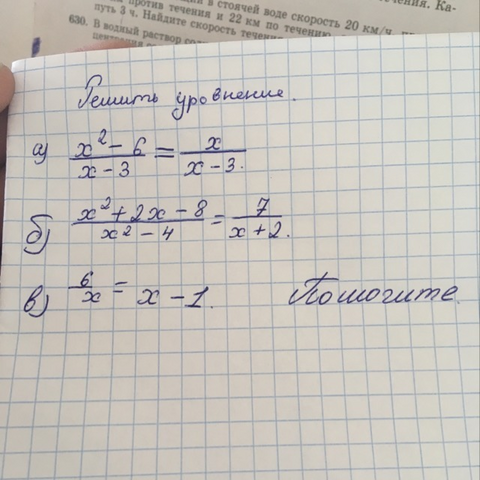 чения. Ка-
в стоячей воде скорость 20 км/ч, пр
против течения и 22 км по течению
путь 3 ч. Найдите скорость течени
630. В водный раствор со
Решить уровнение.
а) x² - 6 / x - 3 = x / x - 3.
б) x² + 2x - 8 / x² - 4 = 7 / x + 2.
в) 6 / x = x - 1. Помогите.